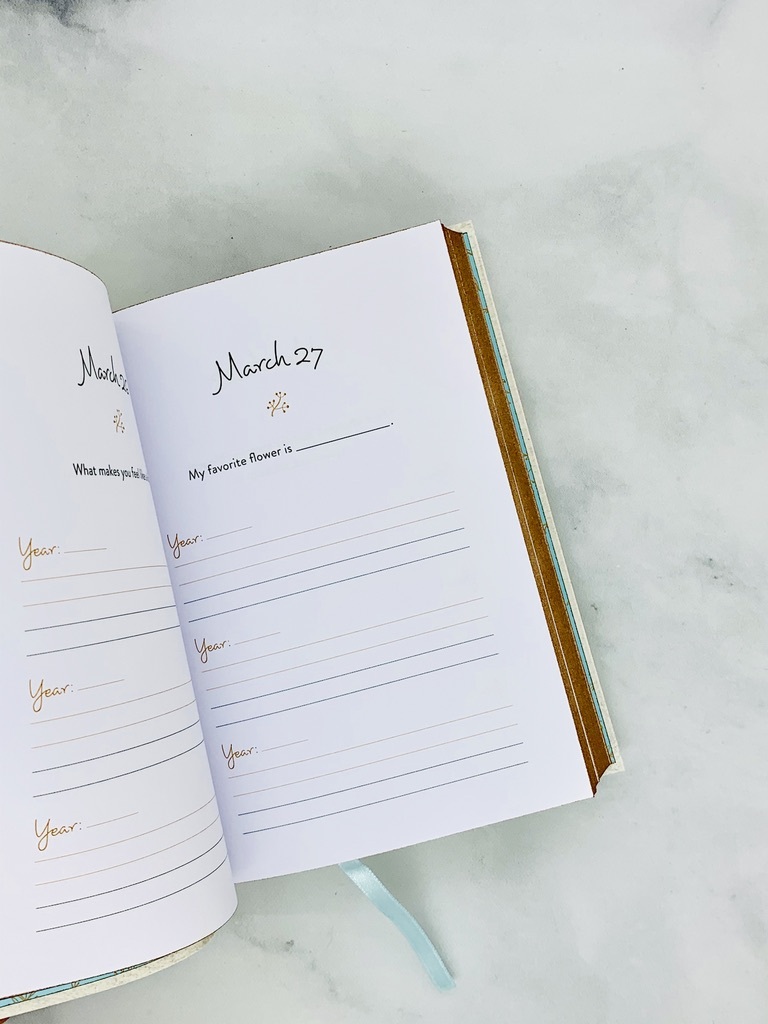 March
What makes you feel
Year:
Year:
Year:
March 27
My favorite flower is ____________.
Year:
Year:
Year: